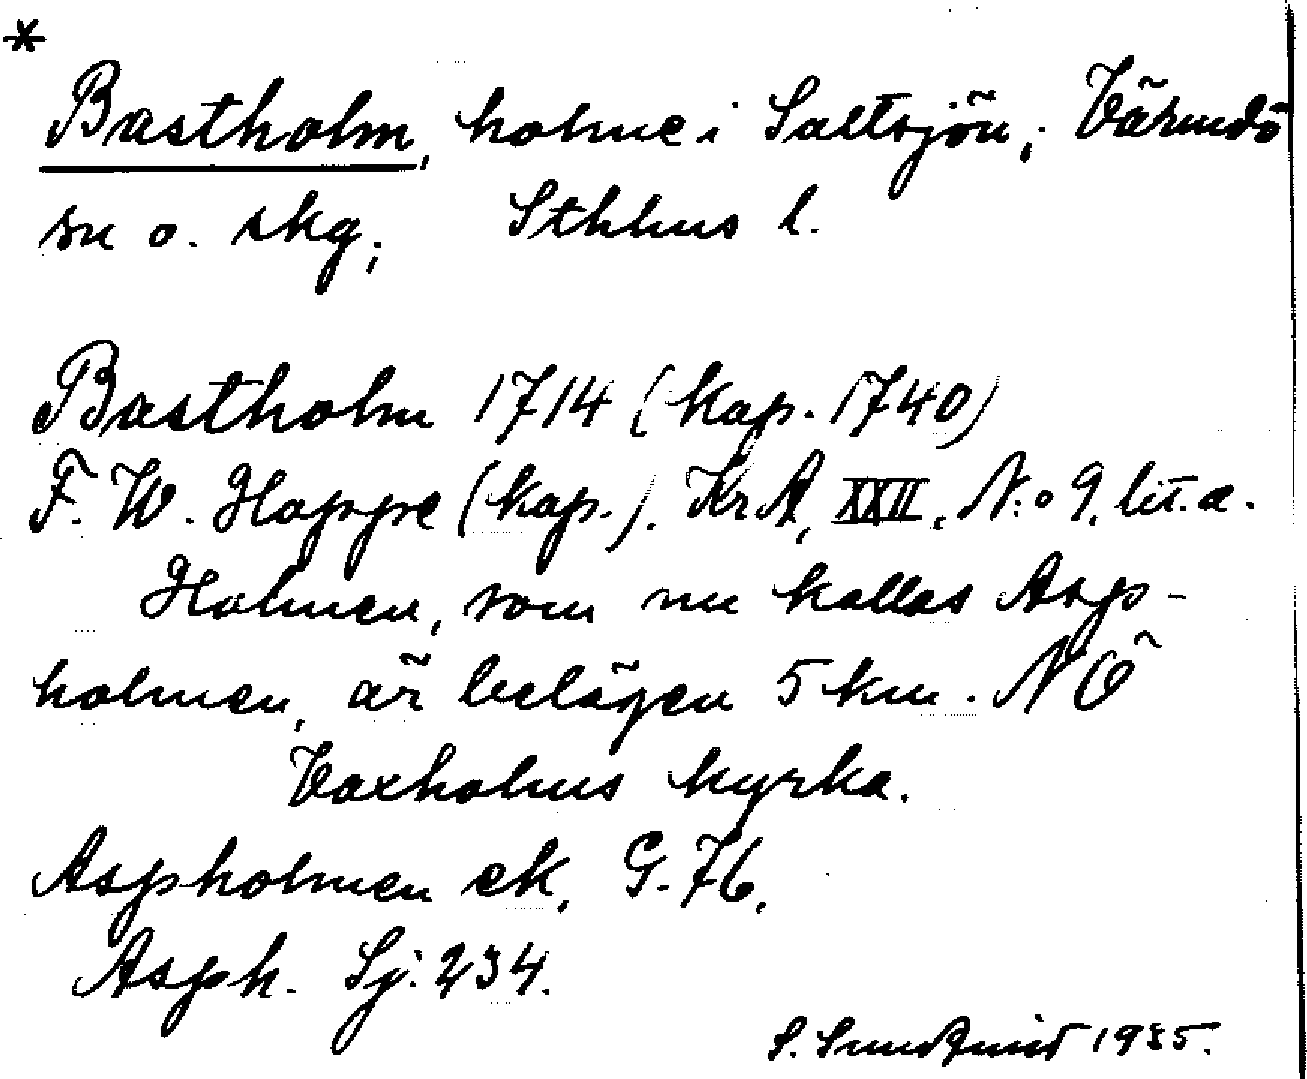 *
Bastholm, holme i Saltsjön; Värmdö
sn o. skg; Sthlms l.
Bastholm 1714 (kap. 1740)
F. W. Hoppe (kap.). KrA, XXII, N:o 9, lit. a.
Holmen, som nu kallas Asp-
holmen, är belägen 5 km. NÖ
Vaxholms kyrka.
Aspholmen ek. G. 76.
Asph. Sj. 234.
S. Sundqvist 1935.